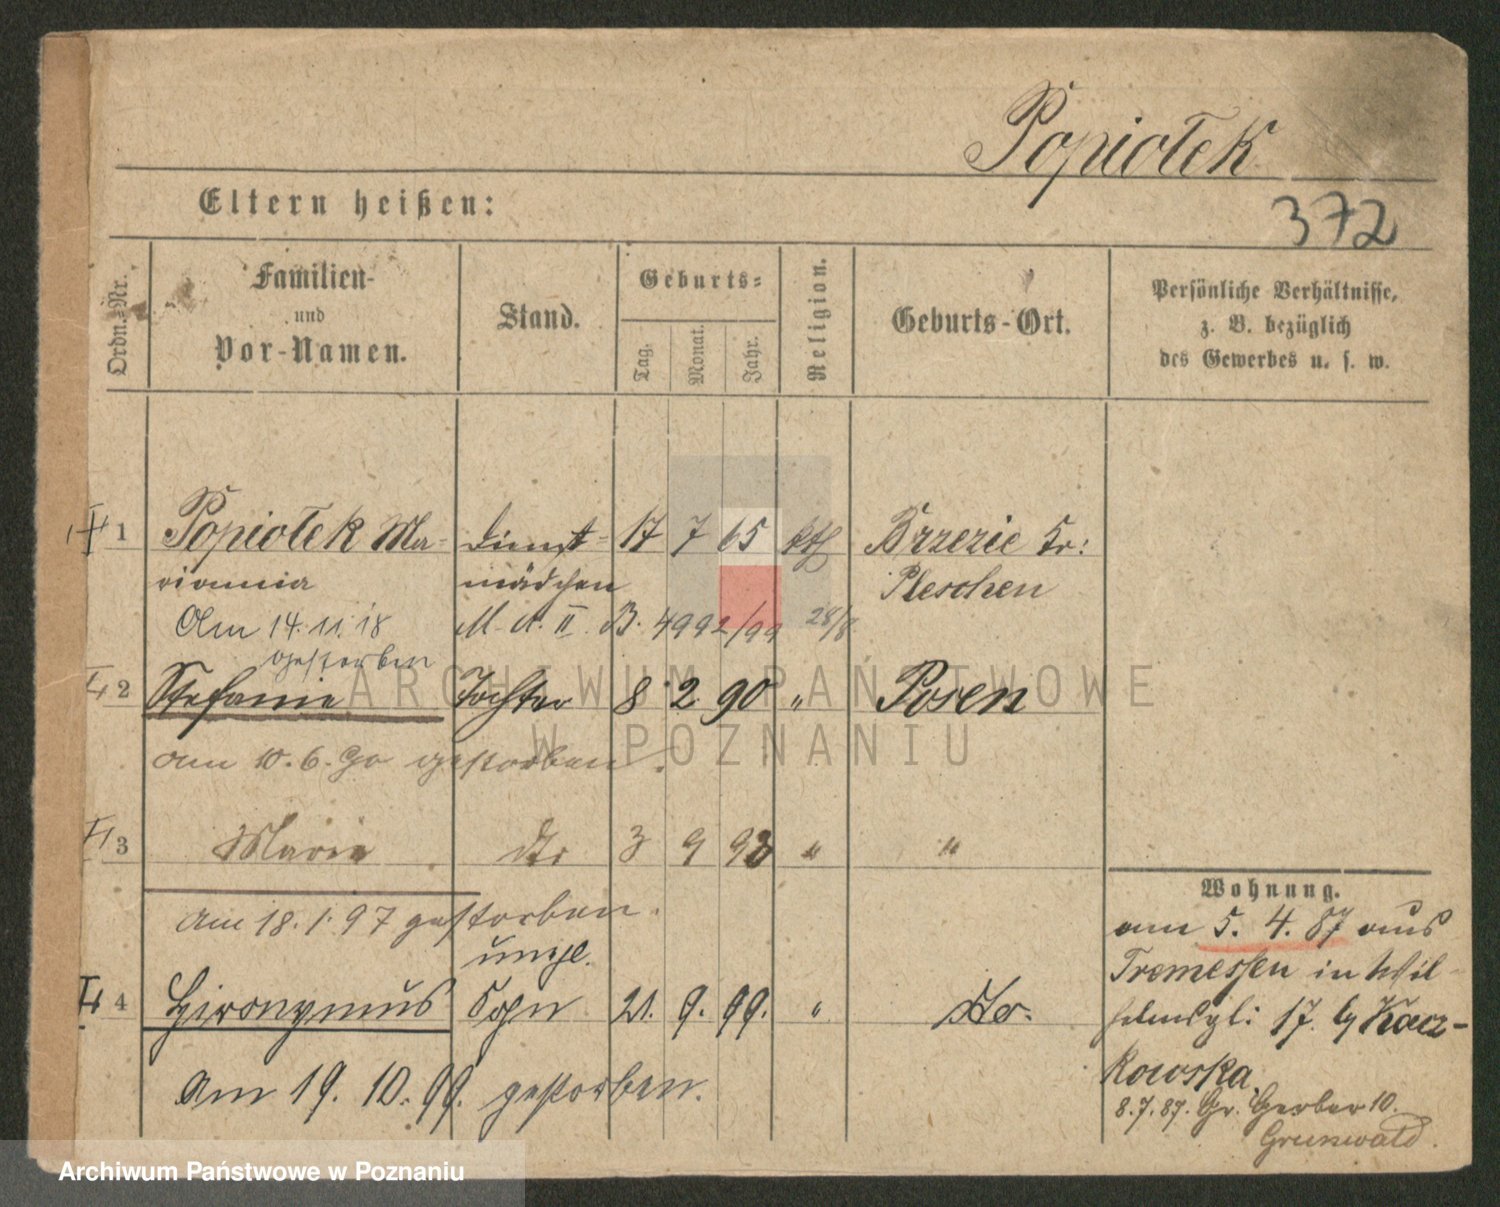 Popiołek
Eltern heißen:
372
Ordn.-Nr.
Familien-
und
Vor-Namen.
Stand.
Geburts-
Tag.
Monat.
Jahr.
Religion.
Geburts-Ort.
Persönliche Verhältnisse,
z. B. bezüglich
des Gewerbes u. s. w.
1 Popiołek Ma- Dienst- 17 7 65 kth Brzezie Kr:
rianna mädchen Pleschen
Am 14.11.18 M. A. II B. 4992/99 28/8
gestorben
2 Stefanie Tochter 8 2 90 " Posen
am 10.6.90 gestorben.
3 Marie dto 3 9 93 " "
am 18.1.97 gestorben.
unehl.
4 Hironymus Sohn 21. 9. 99. " do.
Am 19.10.99. gestorben.
Wohnung.
am 5. 4. 87 aus
Tremessen in Wil-
helmspl: 17. b/ Kacz-
kowska
8.7.87. Gr. Gerber 10.
Grunwald.
ARCHIWUM PAŃSTWOWE
W POZNANIU
Archiwum Państwowe w Poznaniu